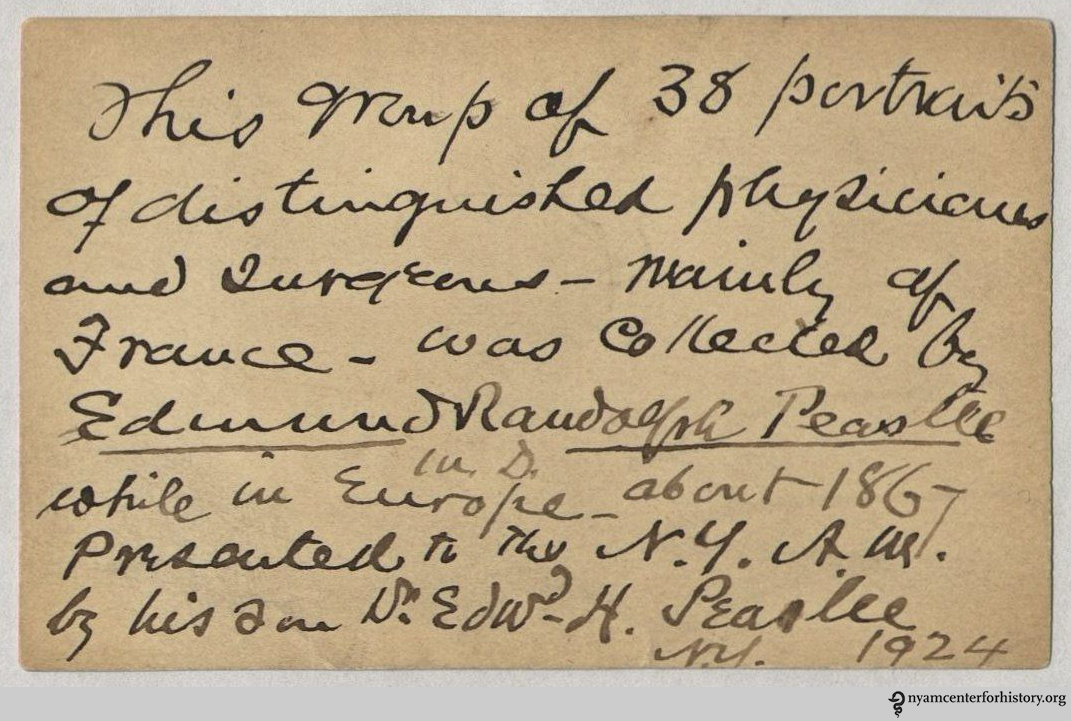 This group of 38 portraits
of distinguished physicians
and Surgeons – mainly of
France – was Collected by
Edmund Randolph Peaslee
M. D.
while in Europe – about 1867
Presented to the N.Y. A. M.
by his son Dr. Edwd. H. Peaslee
N.Y. 1924
nyamcenterforhistory.org